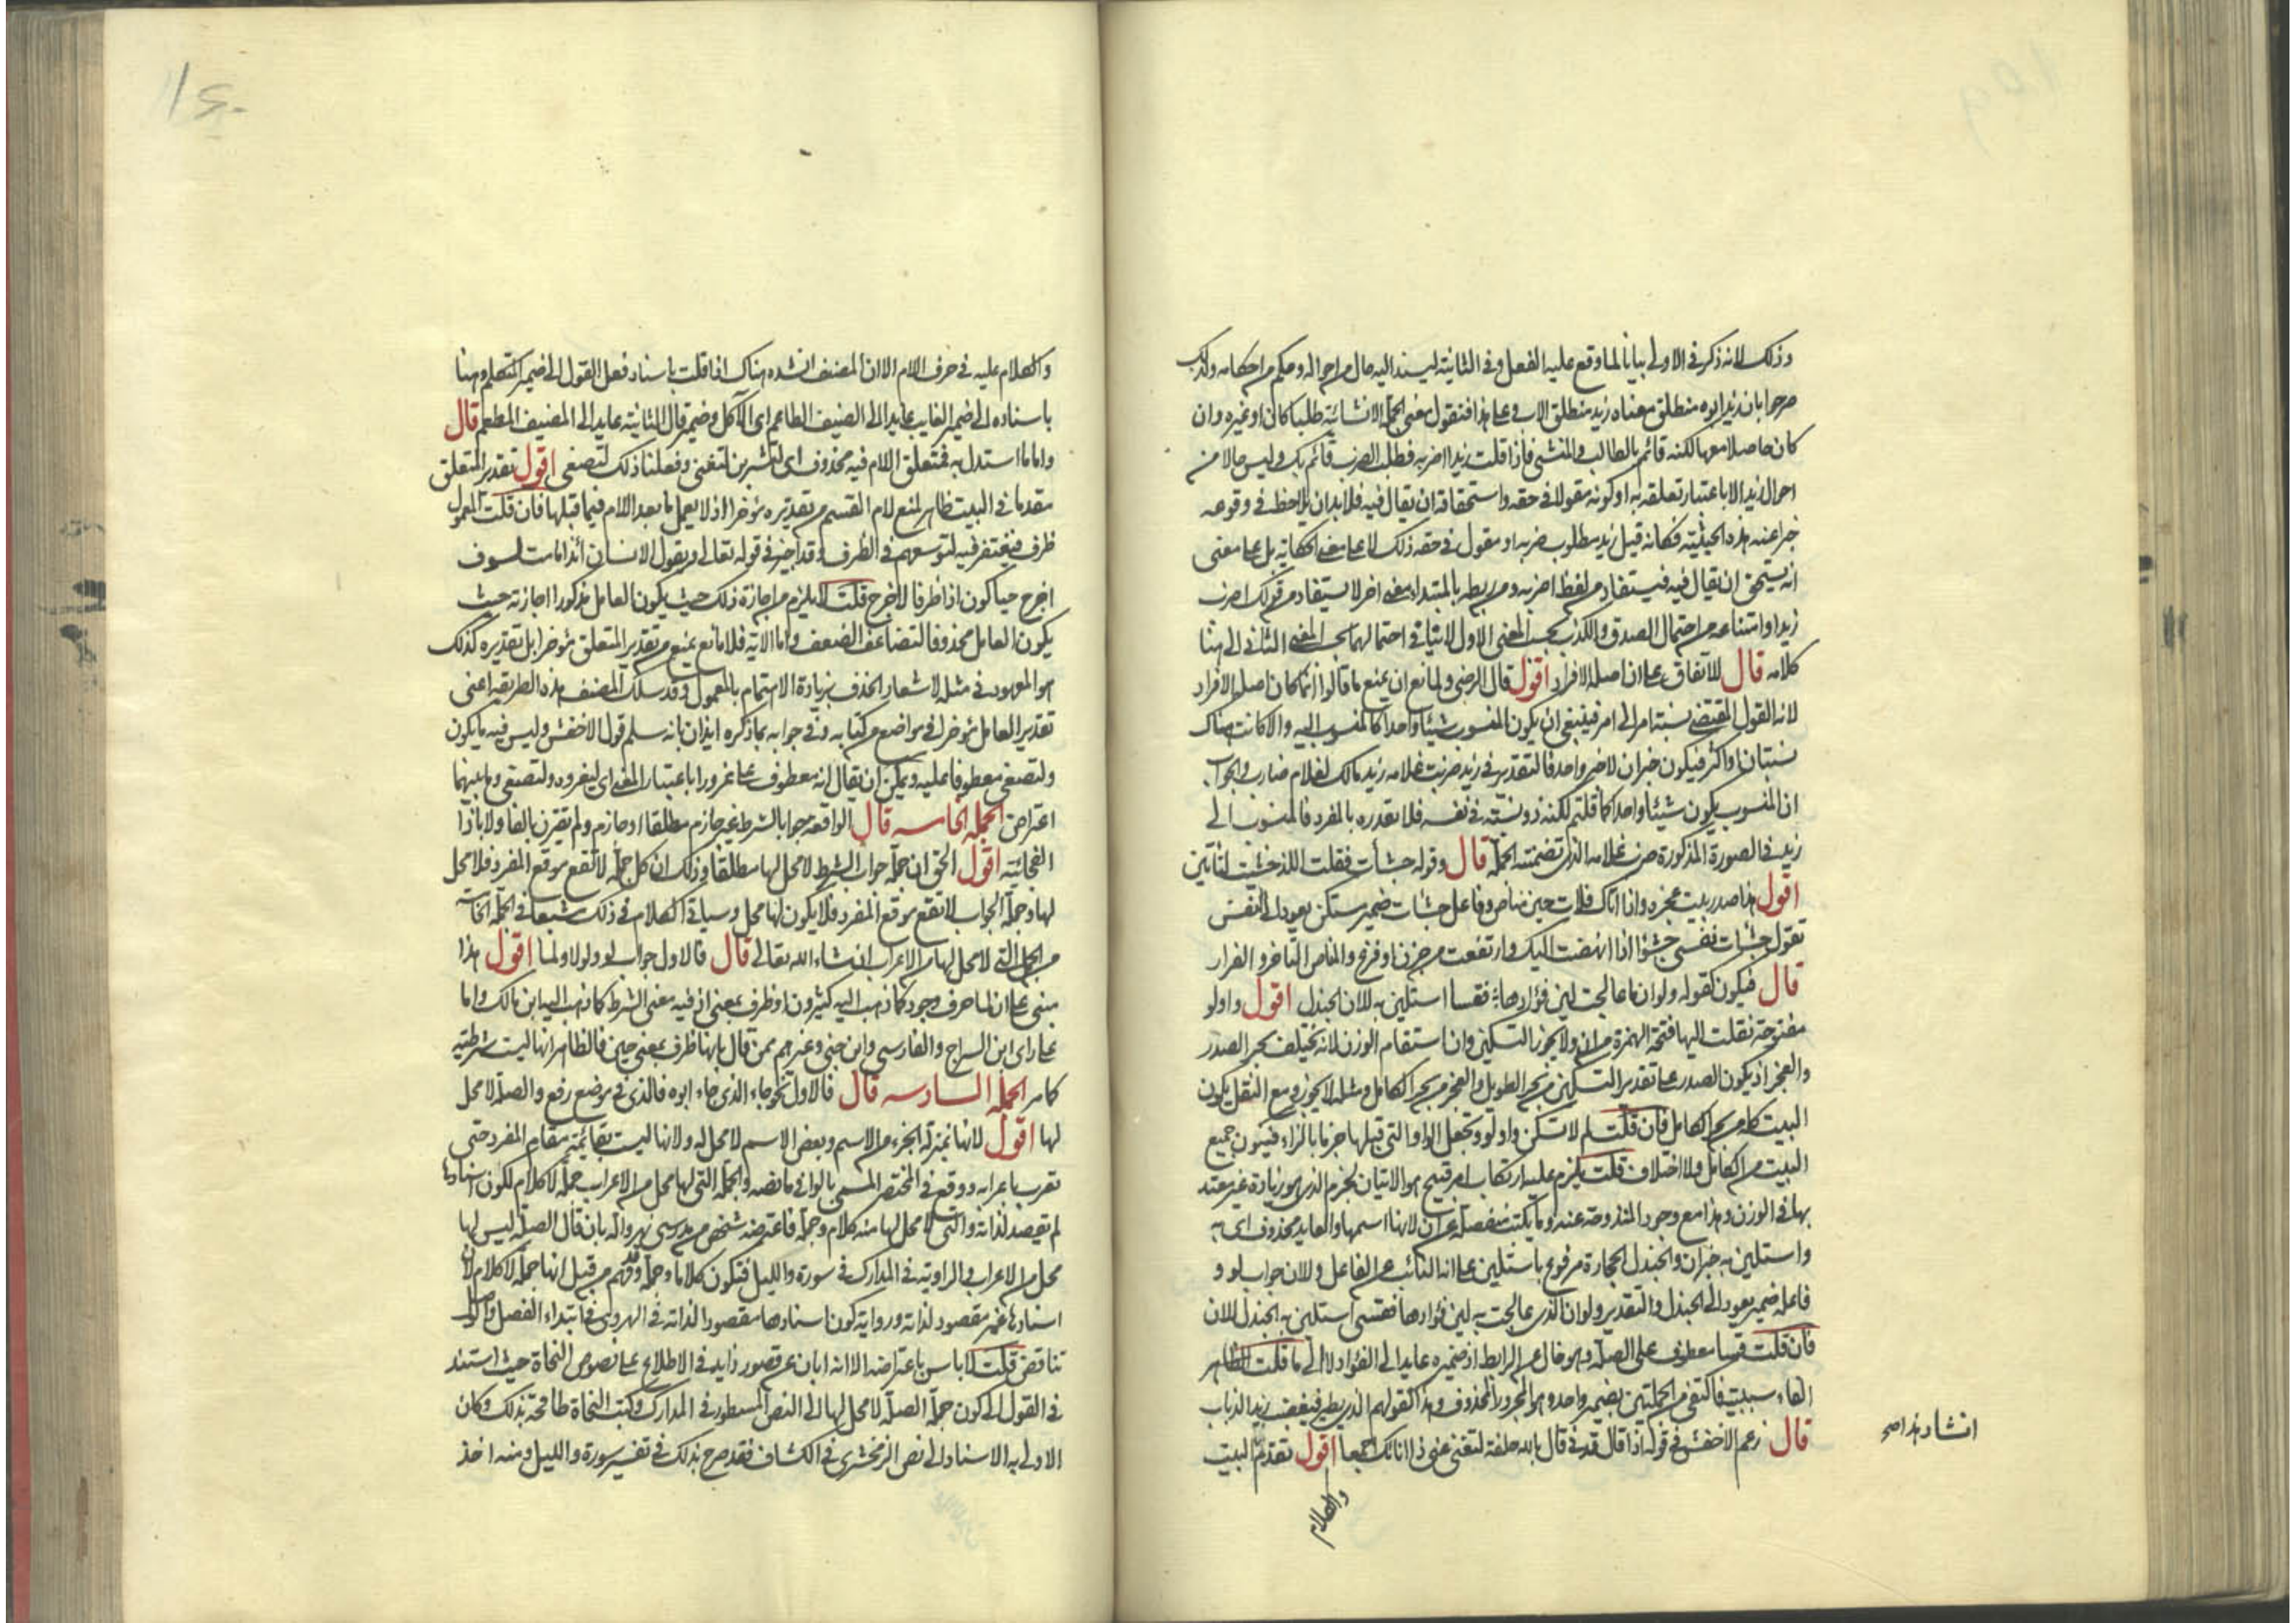 وذلك لانه ذكر في الاولى بيانا لما وقع عليه الفعل وفي الثانية ليسند اليه حال من احواله وحكم من احكامه ولذلك
صرحوا بان زيد ابوه منطلق معناه زيد منطلق الاب وعلى هذا فنقول معنى الجملة الانشائية طلبا كان او غيره وان
كان حاصلا معها لكنه قائم بالطالب والمنشئ فاذا قلت زيد اضربه فطلب الضرب قائم بك وليس حالا من
احوال زيد الا باعتبار تعلقه به او كونه مقولا في حقه واستحقاقه ان يقال فيه فلا بد ان يلاحظ في وقوعه
خبرا عنه هذه الحيثية فكانه قيل زيد مطلوب ضربه او مقول في حقه ذلك لا على معنى الحكاية بل على معنى
انه يستحق ان يقال فيه فيستفاد من لفظ اضربه ومن ربطه بالمبتدا معنى اخر لا يستفاد من قولك اضرب
زيدا وامتناعه من احتمال الصدق والكذب بحسب المعنى الاول لا ينافي احتمالهما بحسب المعنى الثاني الى هنا
كلامه قال للاتفاق على ان اصله الافراد اقول قال الرضي ولمانع ان يمنع ما قالوا انما كان اصله الافراد
لانه القول المقتضي نسبة امر الى امر فينبغي ان يكون المنسوب شيئا واحدا كالمنسوب اليه والا كانت هناك
نسبتان او اكثر فيكون خبران لا خبر واحد فالتقدير في زيد ضربت غلامه زيد مالك لغلام ضارب والجواب
ان المنسوب يكون شيئا واحدا كما قلتم لكنه ذو نسبة في نفسه فلا نقدره بالمفرد فالمنسوب الى
زيد في الصورة المذكورة ضرب غلامه الذي تضمنته الجملة قال وقوله جشأت فقلت اللذ خشيت لتأتين
اقول هذا صدر بيت عجزه واذا اتاك فلات حين مناص وفاعل جشأت ضمير مستكن يعود الى النفس
تقول جشأت نفسي جشؤا اذا نهضت اليك وارتفعت من حزن او فزع والمناص التاخر والفرار
قال فيكون كقوله ولو ان ما عالجت لين فؤادها فقسا استلين به للان الجندل اقول واو لو
مفتوحة نقلت اليها فتحة الهمزة من ان ولا يجوز التسكين وان استقام الوزن لانه يختلف بحر الصدر
والعجز اذ يكون الصدر على تقدير التسكين من بحر الطويل والعجز من بحر الكامل ومثله لا يجوز ومع النقل يكون
البيت كله من بحر الكامل فان قلت لم لا تسكن واو لو وتجعل الواو التي قبلها خزما بالزاء فيكون جميع
البيت من الكامل ولا اختلاف قلت يلزم عليه ارتكاب امر قبيح هو الاتيان بالخزم الذي هو زيادة غير معتد
بها في الوزن وهذا مع وجود المندوحة عنه وما يكتب منفصلة عن ان لانها اسمها والعايد محذوف اي به
واستلين به خبر ان والجندل الحجارة مرفوع باستلين على انه النائب عن الفاعل وللان جواب لو و
فاعله ضمير يعود الى الجندل والتقدير ولو ان الذي عالجت به لين فؤادها فقسى استلين به الجندل للان
فان قلت قسا معطوف على الصلة وهو خال عن الرابط اذ ضميره عايد الى الفؤاد لا الى ما قلت الظاهر
الفاء سببية فاكتفى من الجملتين بضمير واحد وهو المجرور المحذوف وهذا كقولهم الذي يطير فيغضب زيد الذباب
قال زعم الاخفش في قوله اذا قال قدني قال بالله حلفة لتغني عني ذا انائك اجمعا اقول تقدم البيت
انشاد هذا صح
والكلام
والكلام عليه في حرف اللام الا ان المصنف انشده هناك اذا قلت باسناد فعل القول الى ضمير المتكلم وهنا
باسناده الى ضمير الغايب عايدا الى الضيف الطاعم اي الآكل وضمير قال الثانية عايد الى المضيف المطعم قال
واما ما استدل به فمتعلق اللام فيه محذوف اي لتشربن لتغني وفعلنا ذلك لتصغى اقول تقدير المتعلق
مقدما في البيت ظاهر لمنع لام القسم من تقديره مؤخرا اذ لا يعمل ما بعد اللام فيما قبلها فان قلت المعمول
ظرف فيغتفر فيه لتوسعهم في الظرف وقد اجيز في قوله تعالى ويقول الانسان أئذا ما مت لسوف
اخرج حيا كون اذا ظرفا لاخرج قلت لا يلزم من اجازة ذلك حيث يكون العامل مذكورا اجازته حيث
يكون العامل محذوفا لتضاعف الضعف واما الاية فلا مانع يمنع من تقدير المتعلق مؤخرا بل تقديره كذلك
هو المعهود في مثله لاشعار الحذف بزيادة الاهتمام بالمعمول وقد سلك المصنف هذه الطريقه اعني
تقدير العامل مؤخرا في مواضع من كتابه وفي جوابه بما ذكره ايذان بانه سلم قول الاخفش وليس فيه ما يكون
ولتصغى معطوفا عليه ويمكن ان يقال انه معطوف على غرورا باعتبار المعنى اي ليغروه ولتصغى وما بينهما
اعتراض الجملة الخامسه قال الواقعة جوابا لشرط غير جازم مطلقا او جازم ولم تقترن بالفا ولا باذا
الفجائية اقول الحق ان جملة جواب الشرط لا محل لها مطلقا وذلك ان كل جملة لا تقع موقع المفرد فلا محل
لها وجملة الجواب لا تقع موقع المفرد فلا يكون لها محل وسياتي الكلام في ذلك مشبعا في الجملة الخامسة
من الجمل التي لا محل لها من الاعراب ان شاء الله تعالى قال فالاول جواب لو ولولا ولما اقول هذا
مبني على ان لما حرف وجود كما ذهب اليه كثيرون او ظرف بمعنى اذ فيه معنى الشرط كما ذهب اليه ابن مالك واما
على راى ابن السراج والفارسي وابن جني وغيرهم ممن قال بانها ظرف بمعنى حين فالظاهر انها ليست شرطية
كما مر الجملة السادسه قال فالاول نحو جاء الذي جاء ابوه فالذي في موضع رفع والصلة لا محل
لها اقول لانها بمنزلة الجزء من الاسم وبعض الاسم لا محل له ولانها ليست بقائمة مقام المفرد حتى
تعرب باعرابه ووقع في المختصر المسمى بالوافي ما نصه والجملة التي لها محل من الاعراب جملة لا كلام لكون اسنادها
لم يقصد لذاته والتي لا محل لها منه كلام وجملة فاعترضه شخص من مدرسي نهرواله بان قال الصلة ليس لها
محل من الاعراب في الراوية في المدارك في سورة والليل فتكون كلاما وجملة وقد فهم من قبل انها جملة لا كلام لان
اسنادها غير مقصود لذاته ورواية كون اسنادها مقصودا لذاته في الهروي في ابتداء الفصل والحال
تناقض قلت لا باس باعتراضه الا انه ابان عن قصور زايد في الاطلاع على نصوص النحاة حيث استند
في القول الى كون جملة الصلة لا محل لها الى النص المسطور في المدارك وكتب النحاة طافحة بذلك وكان
الاولى به الاسناد الى نص الزمخشري في الكشاف فقد صرح بذلك في تفسير سورة والليل ومنه اخذ